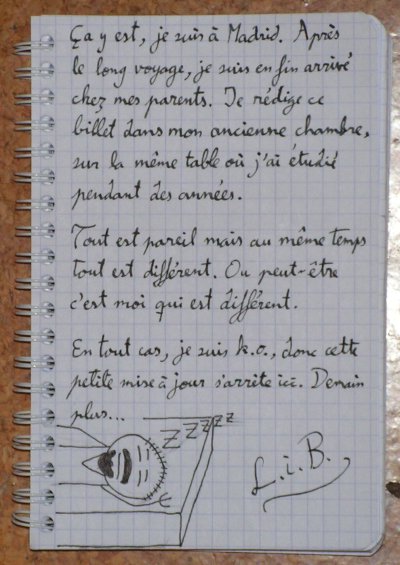 Ça y est, je suis à Madrid. Après
le long voyage, je suis en fin arrivé
chez mes parents. Je rédige ce
billet dans mon ancienne chambre,
sur la même table où j'ai étudié
pendant des années.
Tout est pareil mais au même temps
tout est différent. Ou peut-être
c'est moi qui est différent.
En tout cas, je suis k.o., donc cette
petite mise à jour s'arrête ici. Demain
plus...
ZZZZZZ
L.i.B.